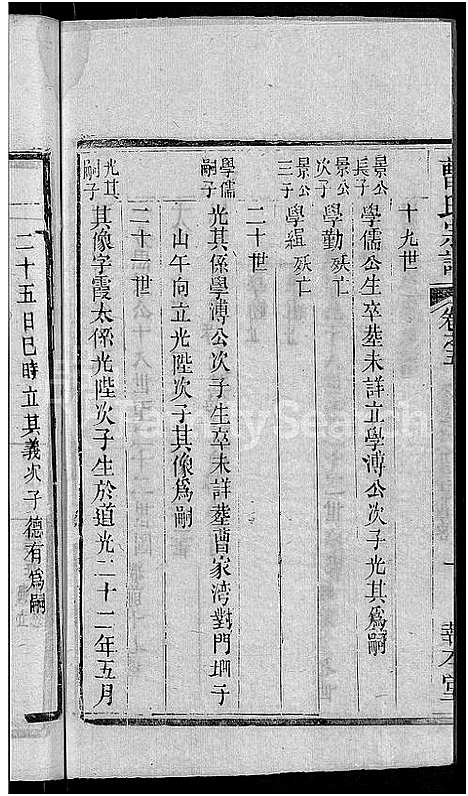 曹氏宗譜
卷之五
一
報本堂
十九世
景公長子
學儒公生卒塟未詳立學溥公次子光其爲嗣
景公次子
學勤 殀亡
景公三子
學緝 殀亡
二十世
學儒嗣子
光其係學溥公次子生卒未詳塟曹家湾對門垇子
山午向立光陛次子其像爲嗣
二十一世
光其嗣子
其像字霞太係光陛次子生於道光二十二年五月
二十五日巳時立其義次子德有爲嗣
FamilySearch